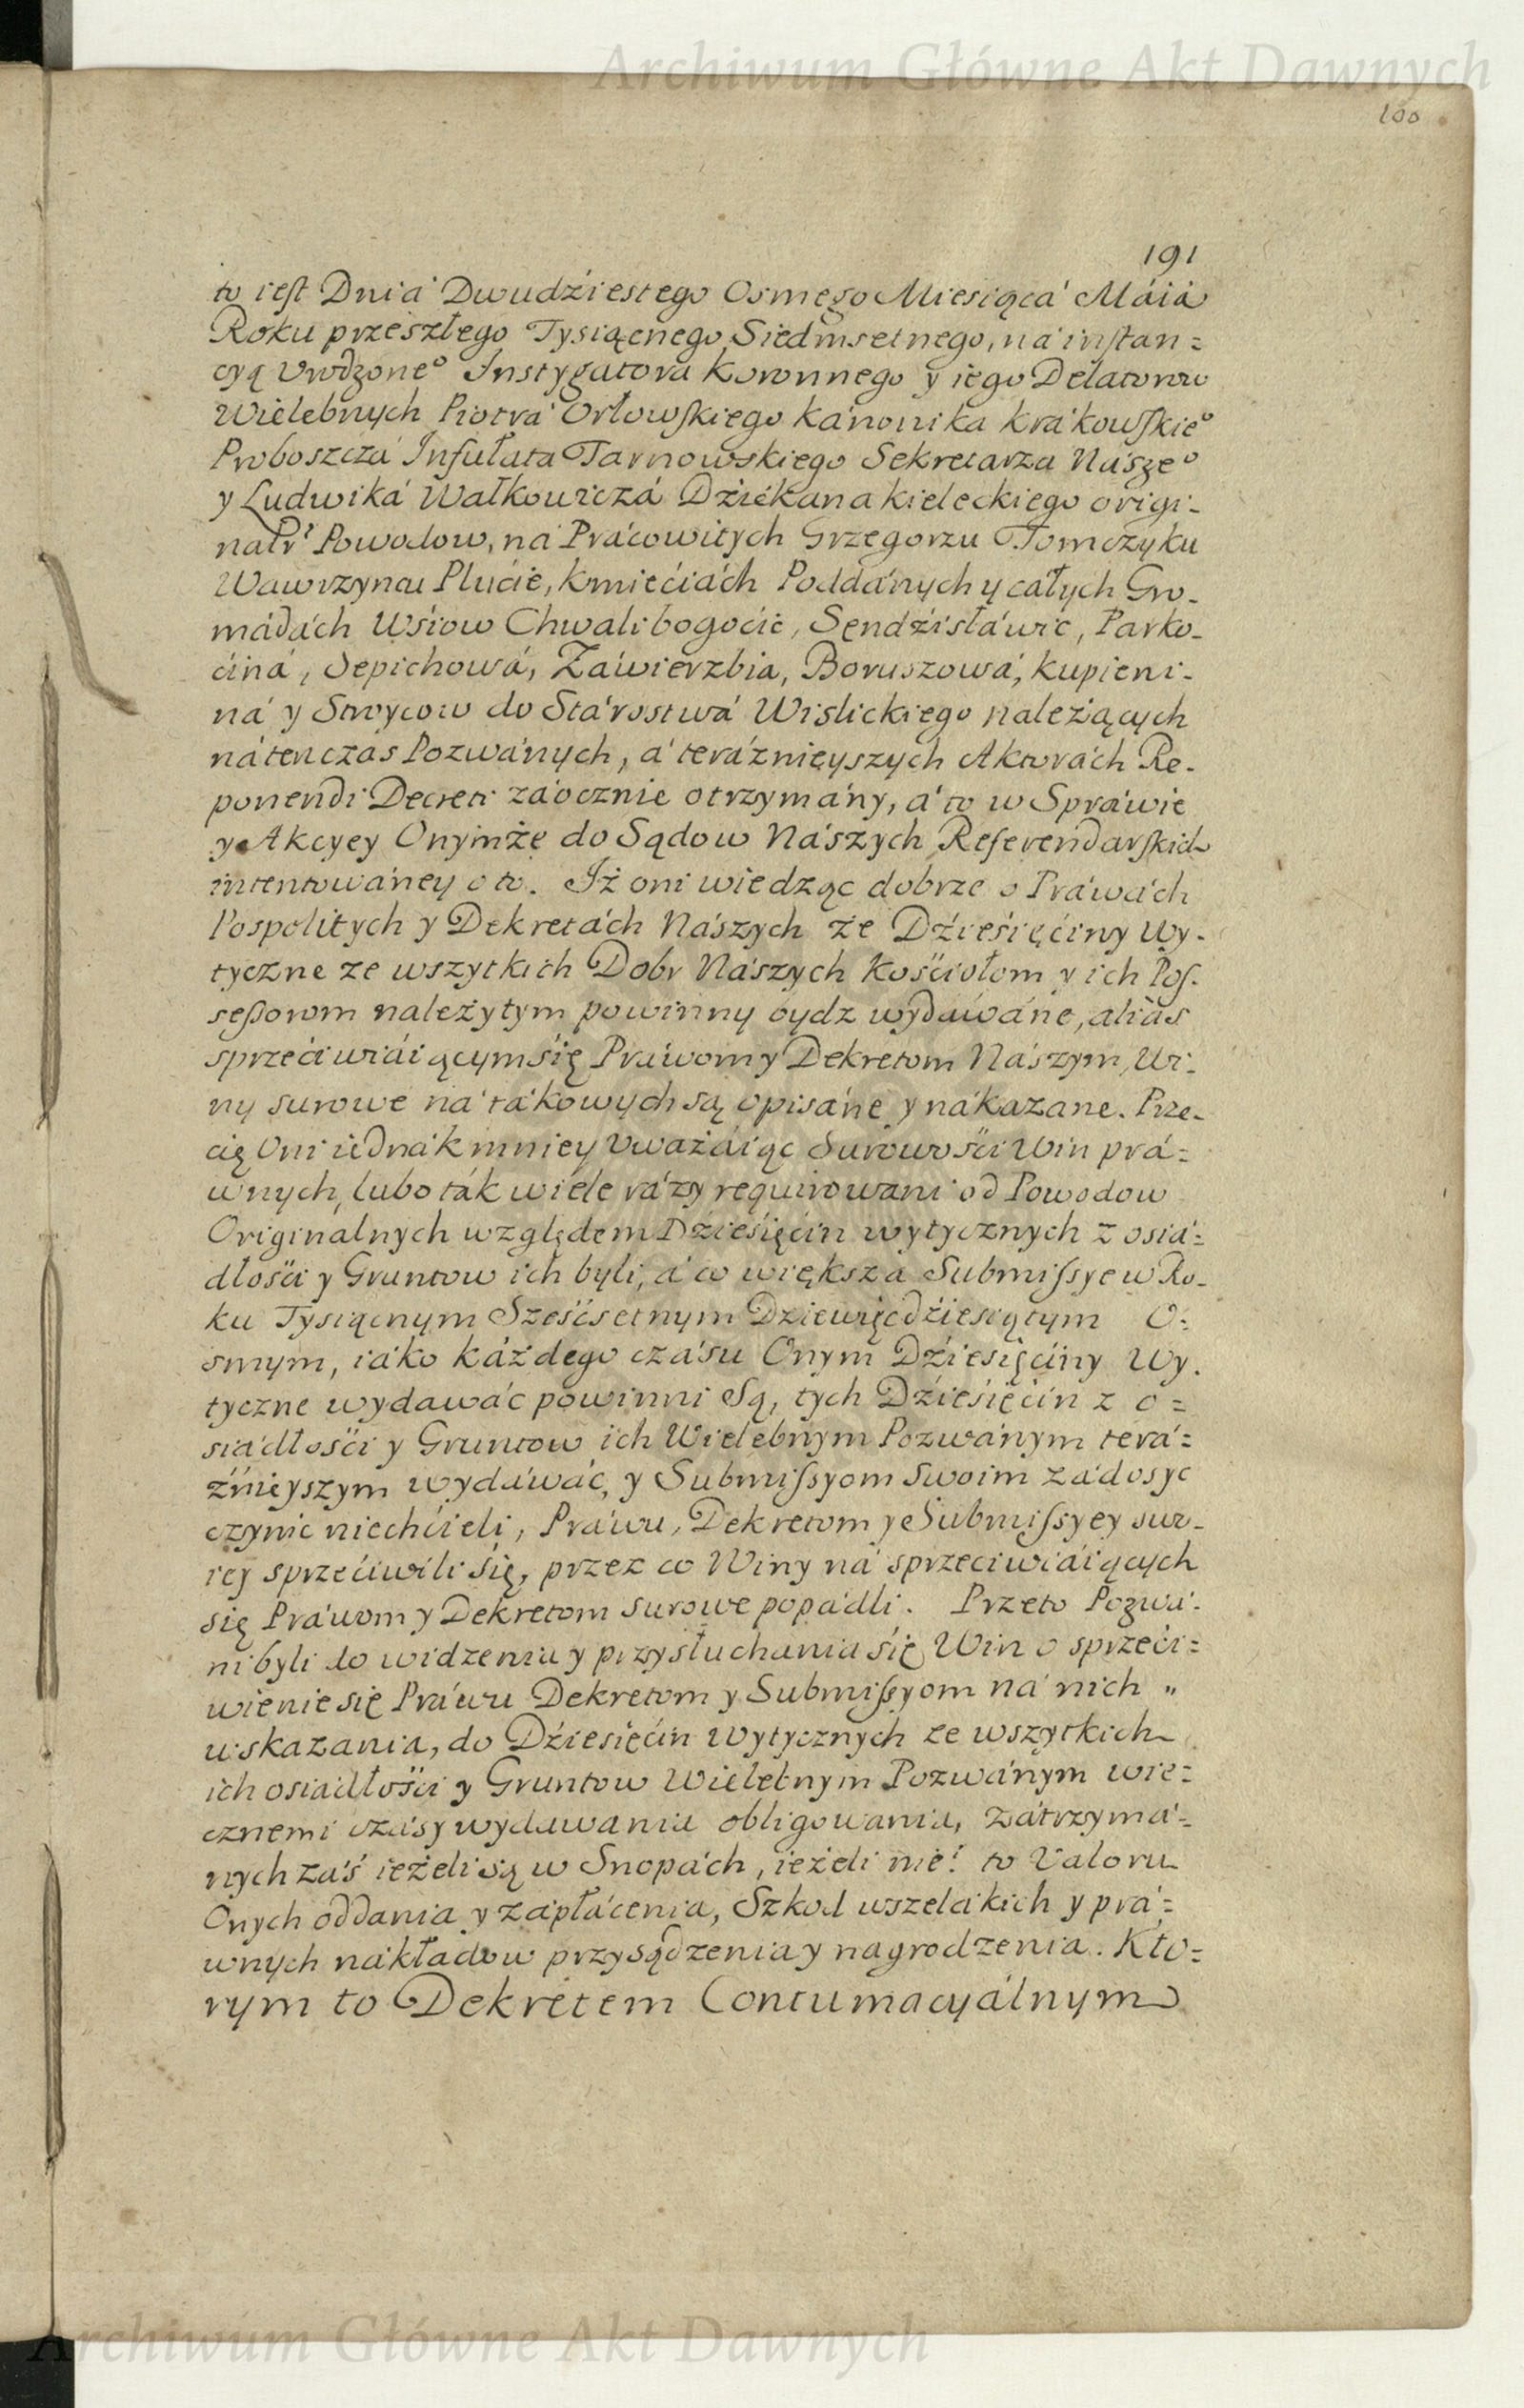 Archiwum Główne Akt Dawnych
100
191
to iest Dnia Dwudźiestego Osmego Miesiącá Máiá
Roku przeszłego Tysiącnego Siedmsetnego, ná instan=
cyą Vrodzone° Instygatora Koronnego y iego Delatorow
Wielebnych Piotrá Orłowskiego Kánonika Krákowskie°
Proboszczá Infułata Tarnowskiego Sekretarza Násze°
y Ludwiká Wałkowiczá Dźiekana Kieleckiego origi-
nalˢ Powodow, ná Prácowitych Grzegorzu Tomczyku
Wawrzyncu Plucie, Kmiećiách Poddánych y całych Gro-
mádách Wsiow Chwalibogoćic, Sęndźisłáwic, Parko-
ćiná, Sepichowá, Záwierzbia, Boruszowá, Kupieni-
ná y Stroycow do Stárostwá Wislickiego należących
nátenczás Pozwánych, á teráznieyszych Aktorách Re-
ponendi Decreti záocznie otrzymány, á to w Spráwie
y Akcyey Onymże do Sądow Nászych Referendarskich
intentowáney o to. Iż oni wiedząc dobrze o Práwách
Pospolitych y Dekretách Nászych że Dźieśięćiny Wy-
tyczne ze wszytkich Dobr Nászych Kośćiołom y ich Pos-
sessorom należytym powinny bydz wydáwáne, aliás
sprzećiwiáiącym się Práwom y Dekretom Nászym, Wi-
ny surowe ná tákowych są opisáne y nákazane. Prze-
cię Oni iednák mniey Vważáiąc Surowośći Win prá=
wnych, lubo ták wiele rázy requirowani od Powodow
Originalnych względem Dźieśięćin wytycznych z osiá=
dłośći y Gruntow ich byli, á co większa Submissye w Ro-
ku Tysiącnym Sześćsetnym Dziewięćdźiesiątym O=
smym, iáko káżdego czásu Onym Dźiesięćiny Wy-
tyczne wydawáć powinni Są, tych Dźieśięćin z o=
siádłośći y Gruntow ich Wielebnym Pozwánym terá=
źnieyszym wydáwáć, y Submissyom Swoim zádosyc
czynic niechćieli, Práwu, Dekretom y Submissyey swo-
iey sprzećiwili się, przez co Winy ná sprzeciwiáiących
się Práwom y Dekretom surowe popádli. Przeto Pozwá-
ni byli do widzenia y przysłuchania się Win o sprzeći=
wienie się Práwu Dekretom y Submissyom ná nich "
wskazania, do Dźiesięćin Wytycznych ze wszytkich
ich osiadłośći y Gruntow Wielebnym Pozwánym wie=
cznemi czásy wydawania obligowania, zátrzymá=
nych záś ieżeli są w Snopách, ieżeli nie: to Valoru
Onych oddania y zápłácenia, Szkod wszelákich y prá=
wnych nákładow przysądzenia y nagrodzenia. Kto=
rym to Dekretem Contumacyálnym
Archiwum Główne Akt Dawnych